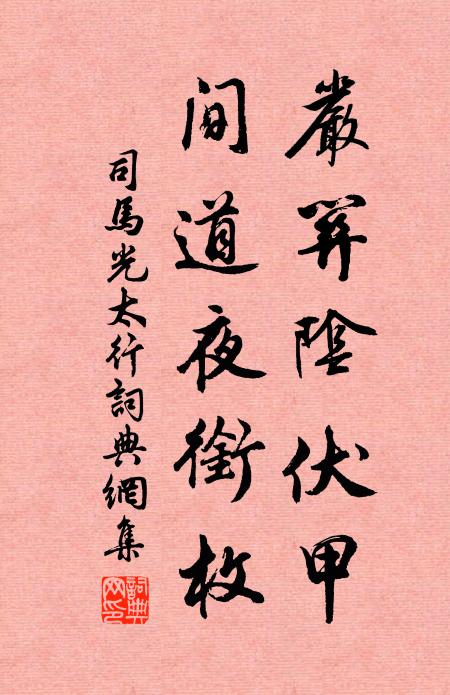 嚴關陰伏甲
間道夜銜枚
司馬光太行詞典網集
詞典